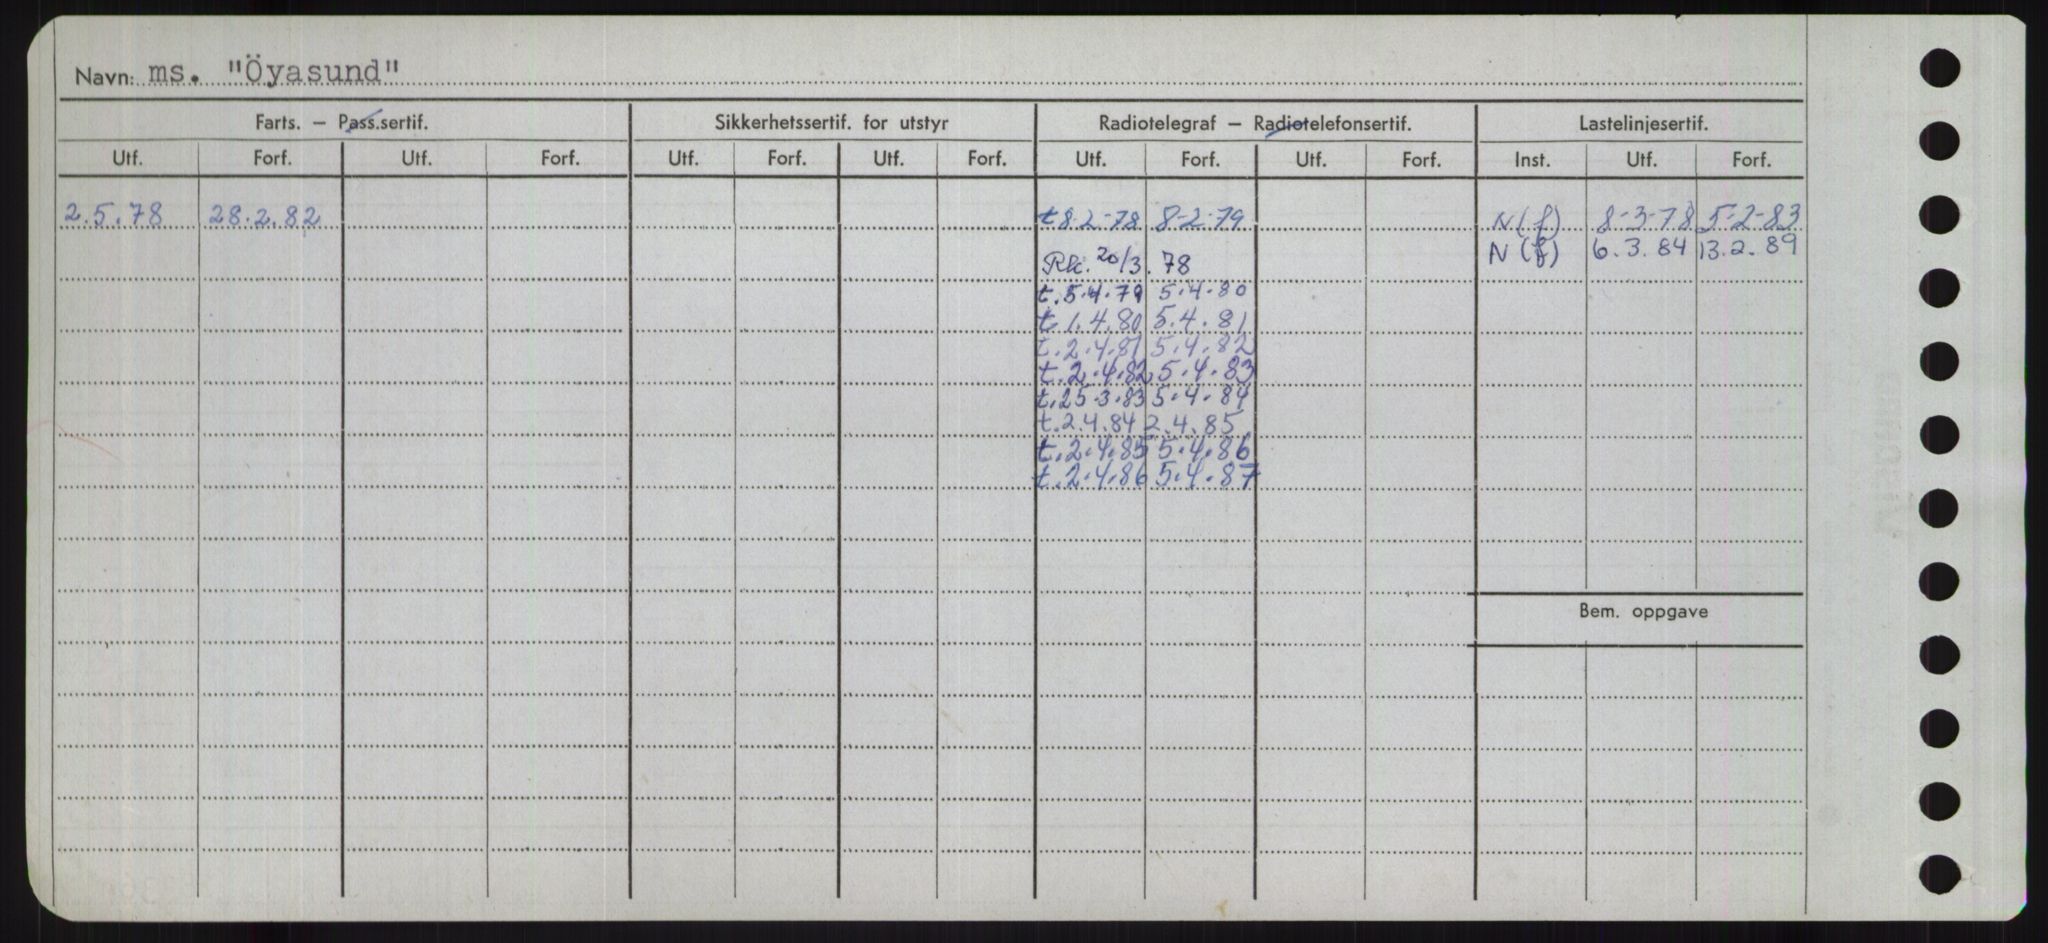 Navn: ms. "Öyasund"
Farts. — Pass.sertif. Sikkerhetssertif. for utstyr Radiotelegraf — Radiotelefonsertif. Lastelinjesertif.
Utf. Forf. Utf. Forf. Utf. Forf. Utf. Forf. Utf. Forf. Utf. Forf. Inst. Utf. Forf.
2.5.78 28.2.82 t8-2-78 8-2-79 N(f) 8-3-78 5-2-83
N(f) 6.3.84 13.2.89
Rk. 20/3.78
t.5.4.79 5.4.80
t.1.4.80 5.4.81
t.2.4.81 5.4.82
t.2.4.82 5.4.83
t.25.3.83 5.4.84
t.2.4.84 2.4.85
t.2.4.85 5.4.86
t.2.4.86 5.4.87
Bem. oppgave